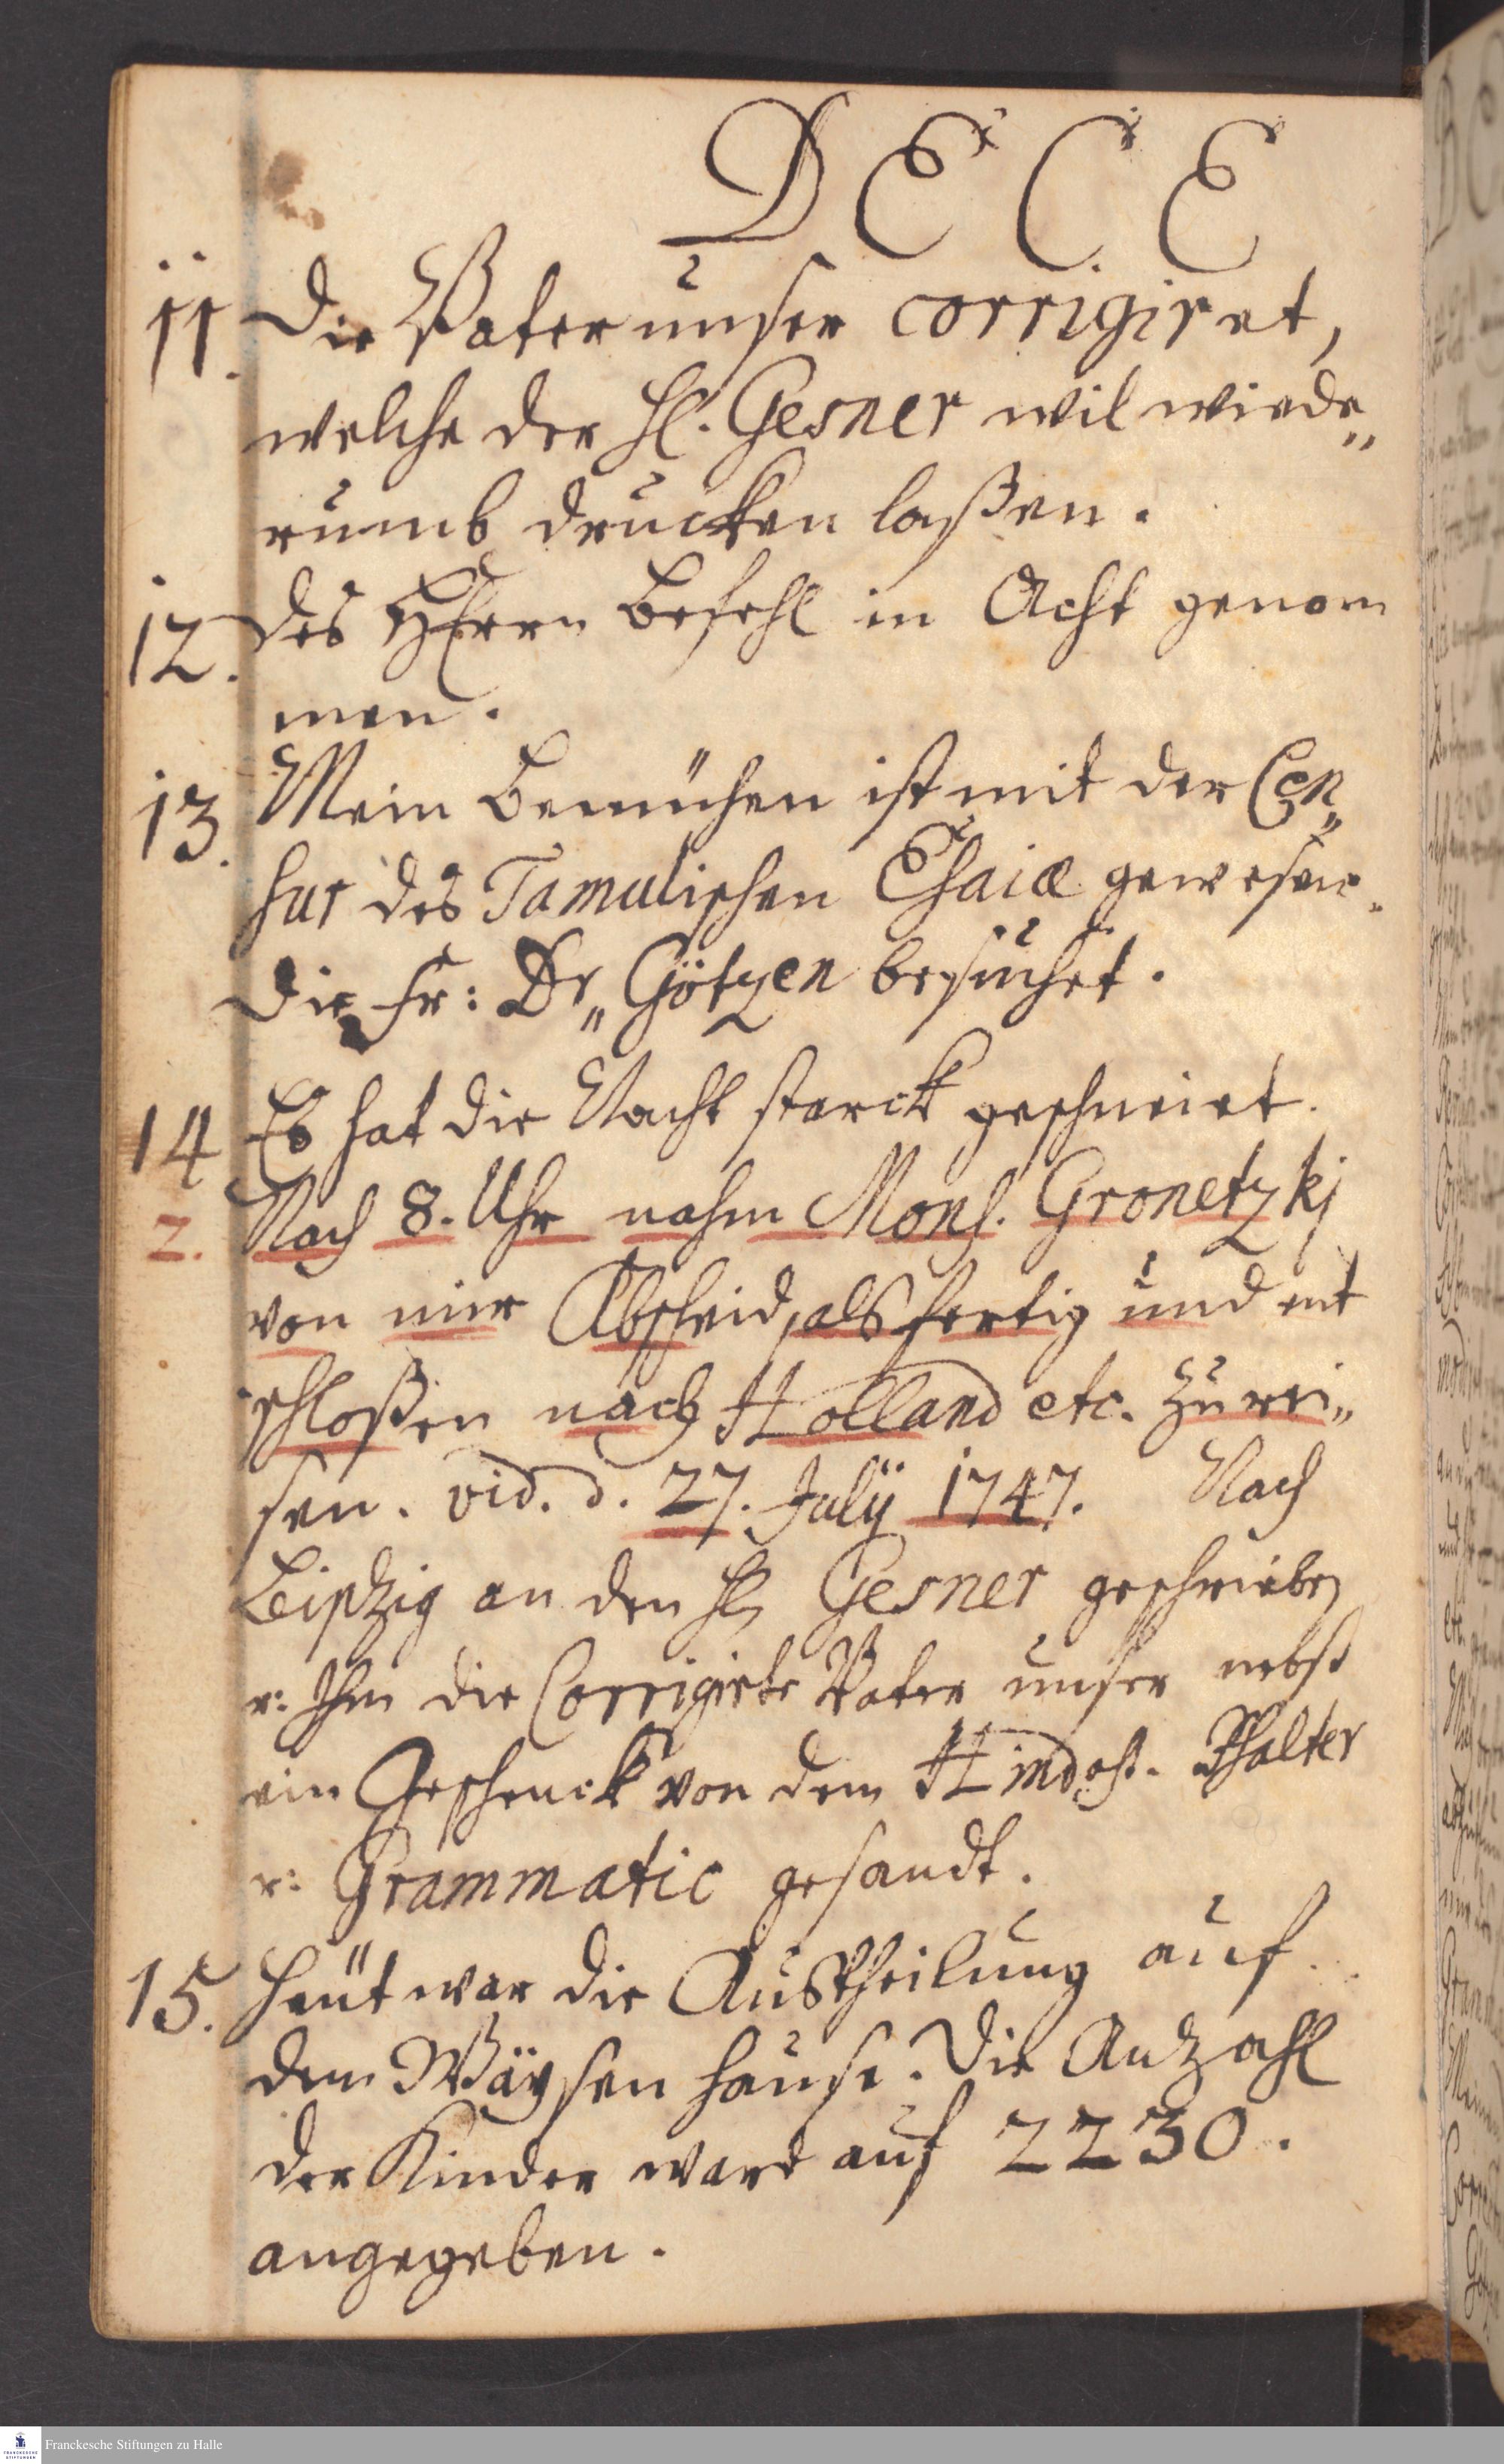 DECE
11. Die Vater unser corrigiret,
welche der H. Gesner wil wiede„
rumb drucken laßen.
12. des HErrn Befehl in Acht genom
men.
13. Mein Bemühen ist mit der Cen„
sur des Tamulischen Esaiæ gewesen.
die Fr: Dr„ Götzen besuchet.
14 Es hat die Nacht starck geschneiet.
2. Nach 8. Uhr nahm Mons. Gronetzkj
von mir Abscheid, als fertig und ent
schloßen nach Holland etc. zu rei„
sen. vid. d. 27. Julÿ 1747. Nach
Leipzig an den H. Gesner geschrieben
u: Ihm die Corrigirte Vater unser nebst
ein Geschenck von dem Hindost. Psalter
u: Grammatic gesandt.
15. Heut war die Austheilung auf
dem Wäysenhause. Die Anzahl
der Kinder ward auf 2230.
angegeben.
FRANCKESCHE STIFTUNGEN
Franckesche Stiftungen zu Halle